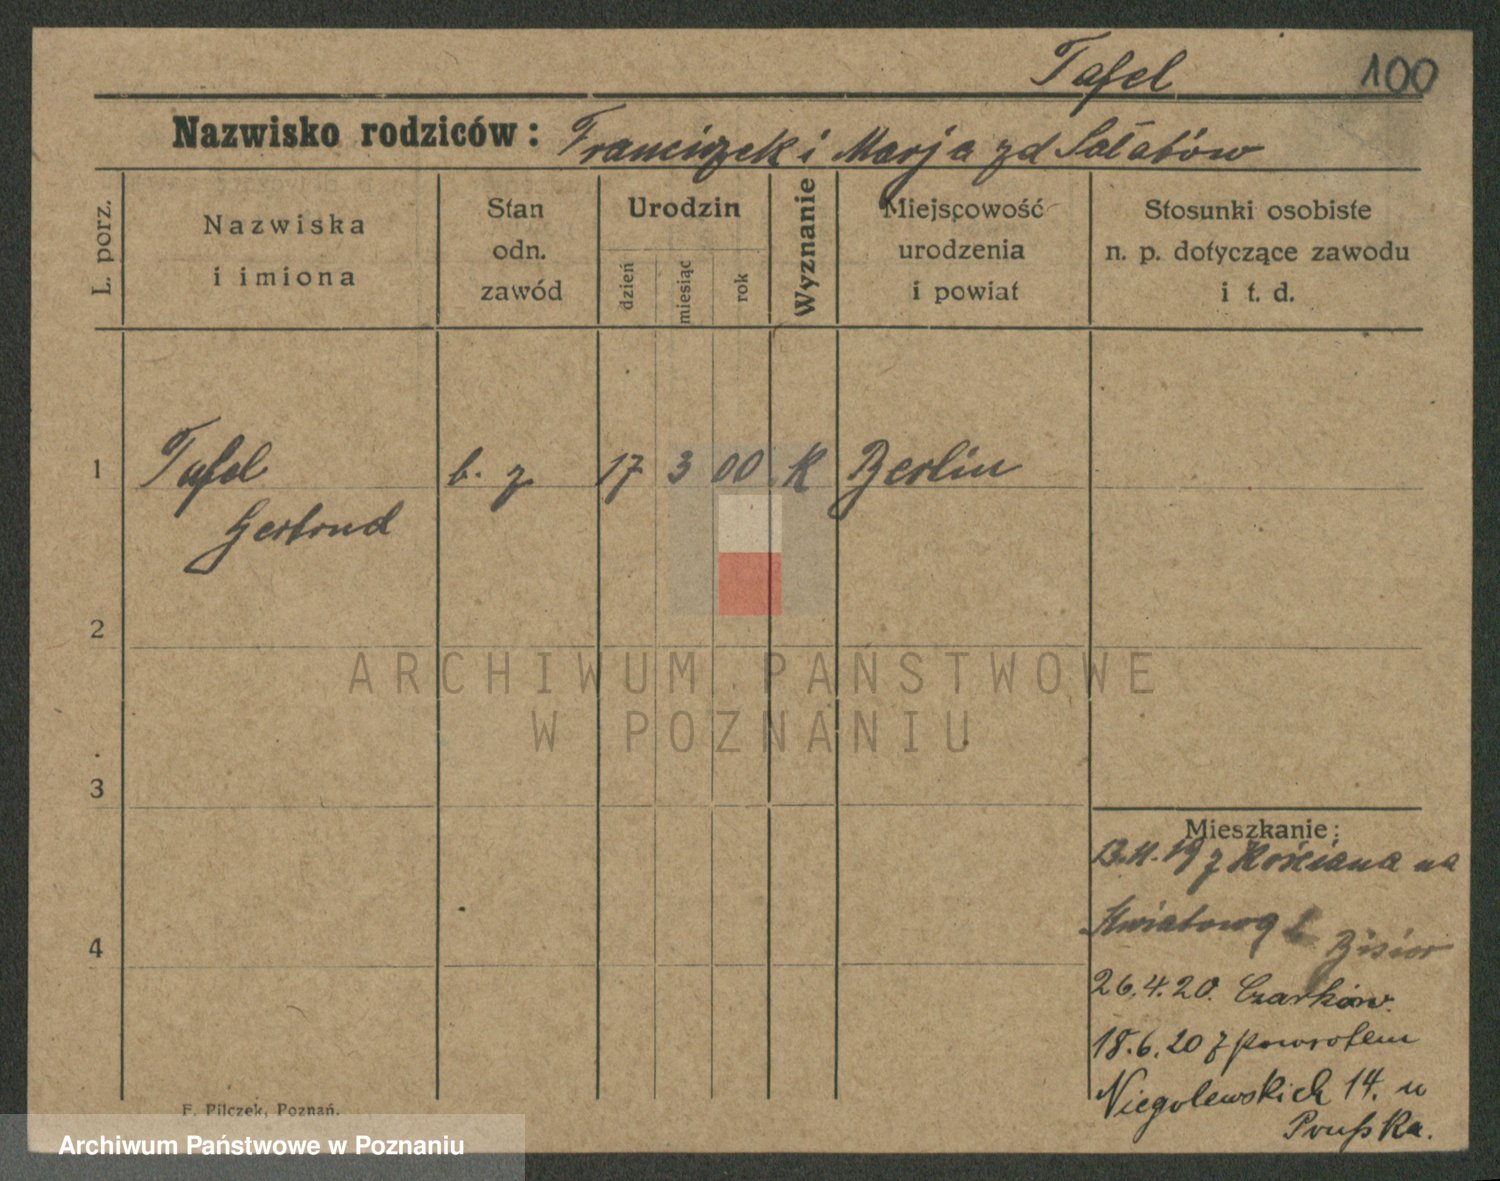 Tafel 100
Nazwisko rodziców: Franciszek i Marja zd Sałatów
L. porz.
Nazwiska i imiona
Stan odn. zawód
Urodzin
dzień
miesiąc
rok
Wyznanie
Miejscowość urodzenia i powiat
Stosunki osobiste n. p. dotyczące zawodu i t. d.
1 Tafel b. z. 17 3 00 K Berlin
Gertrud
2
3
4
Mieszkanie:
z Kościana na
Kwiatową
26.4.20. Czarków.
18.6.20 z powrotem
Niegolewskich 14. u
Pruska.
F. Pilczek, Poznań.
ARCHIWUM PAŃSTWOWE
W POZNANIU
Archiwum Państwowe w Poznaniu